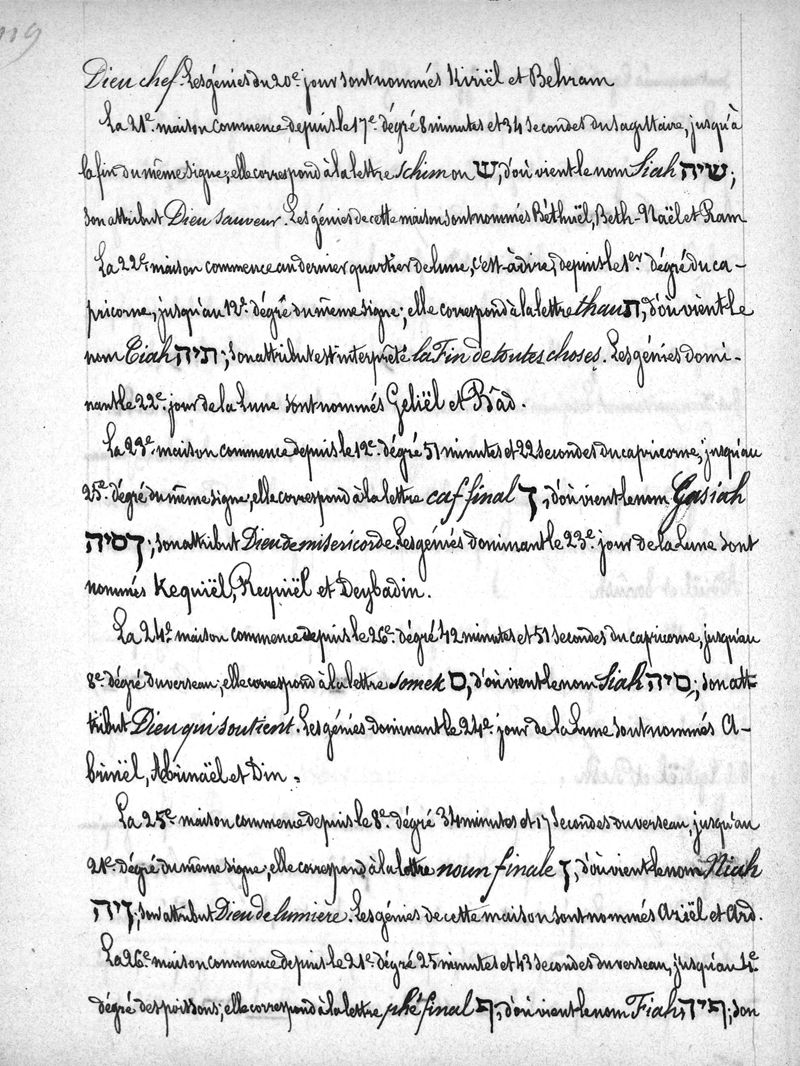 119
Dieu chef. Les génies du 20e. jour sont nommés Kiriël et Behram
La 21e. maison commence depuis le 17e. dégré 8 minutes et 34 secondes du sagittaire, jusqu'à
la fin du même signe; elle correspond à la lettre schim ou ש, d'où vient le nom Siah שיה;
son attribut Dieu sauveur. Les génies de cette maison sont nommés Béthuël, Beth-Naël et Ram
La 22e. maison commence au dernier quartier de lune, c'est-à-dire, depuis le 1er dégré du ca-
pricorne, jusqu'au 12e. dégré du même signe; elle correspond à la lettre thau ת, d'où vient le
nom Tiah תיה; son attribut est interprété la Fin de toutes choses. Les génies domi-
nant le 22e. jour de la Lune sont nommés Geliël et Bâd.
La 23e. maison commence depuis le 12e. dégré 51 minutes et 22 secondes du capricorne, jusqu'au
25e. dégré du même signe, elle correspond à la lettre caf final ך, d'où vient le nom Gasiah
ךסיה; son attribut Dieu de misericorde. Les génies dominant le 23e. jour de la Lune sont
nommés Kequiël, Requiël et Deybadin.
La 24e. maison commence depuis le 26e. dégré 42 minutes et 51 secondes du capricorne, jusqu'au
8e. dégré du verseau; elle correspond à la lettre somek ס, d'où vient le nom Siah סיה; son att-
tribut Dieu qui soutient. Les génies dominant le 24e. jour de la Lune sont nommés A-
briniël, Abrinaël et Din.
La 25e. maison commence depuis le 8e. dégré 34 minutes et 17 secondes du verseau, jusqu'au
21e. dégré du même signe; elle correspond à la lettre noun finale ן, d'où vient le nom Niah
ןיה; son attribut Dieu de lumière. Les génies de cette maison sont nommés Ariël et Ard.
La 26e. maison commence depuis le 21e. dégré 25 minutes et 43 secondes du verseau, jusqu'au 4e.
dégré des poissons; elle correspond à la lettre phé final ף, d'où vient le nom Fiah ףיה; son